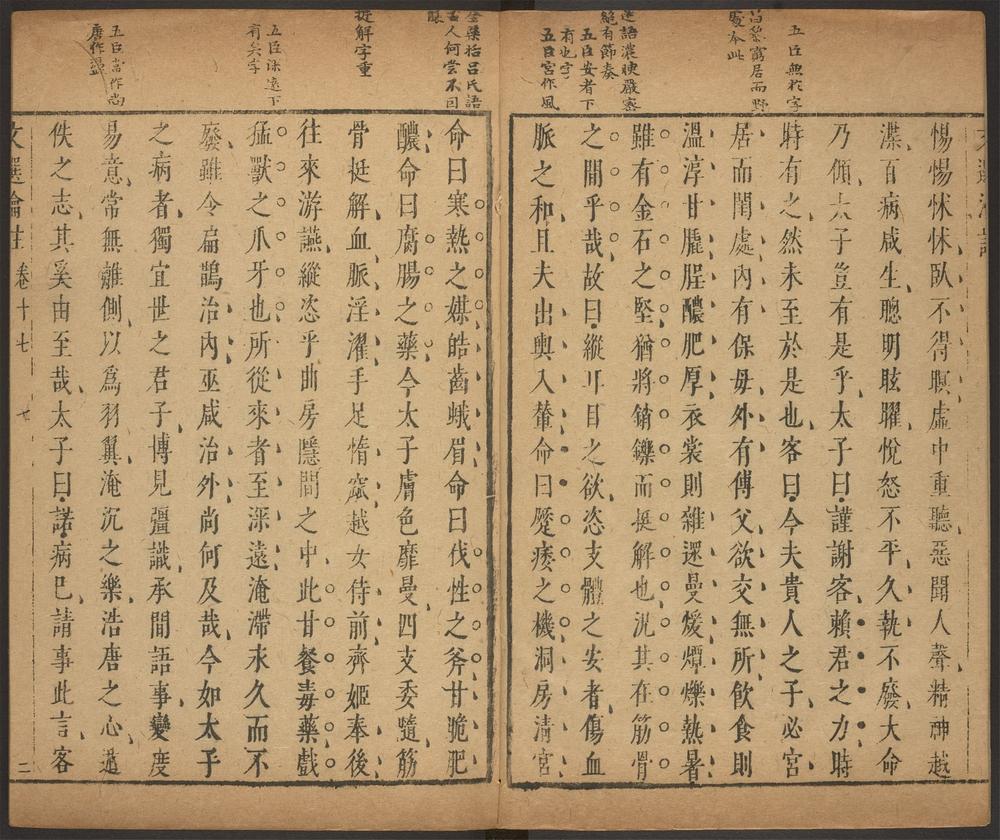 五臣無於字
昌黎窮居而野
處本此
造語濃腴嚴密
絕有節奏
五臣安者下
有也字
五臣宮作風
惕惕怵怵臥不得瞑虛中重聽惡聞人聲精神越
渫百病咸生聰明眩曜悅怒不平久執不廢大命
乃傾太子豈有是乎太子曰謹謝客賴君之力時
時有之然未至於是也客曰今夫貴人之子必宮
居而閨處內有保母外有傅父欲交無所飲食則
溫淳甘膬脭醲肥厚衣裳則雜遝曼煖燂爍熱暑
雖有金石之堅猶將銷鑠而挺解也況其在筋骨
之間乎哉故曰縱耳目之欲恣支體之安者傷血
脈之和且夫出輿入輦命曰蹷痿之機洞房清宮
全槩括呂氏語
古人何嘗不回
醲
挺解字重
五臣深遠下
有矣字
五臣當作尚
唐作蕩
命曰寒熱之媒皓齒蛾眉命曰伐性之斧甘脆肥
醲命曰腐腸之藥今太子膚色靡曼四支委隨筋
骨挺解血脈淫濯手足惰窳越女侍前齊姬奉後
往來游讌縱恣乎曲房隱間之中此甘餐毒藥戲
猛獸之爪牙也所從來者至深遠淹滯永久而不
廢雖令扁鵲治內巫咸治外尚何及哉今如太子
之病者獨宜世之君子博見彊識承間語事變度
易意常無離側以為羽翼淹沉之樂浩唐之心遁
佚之志其奚由至哉太子曰諾病已請事此言客
文選瀹注 卷十七 七